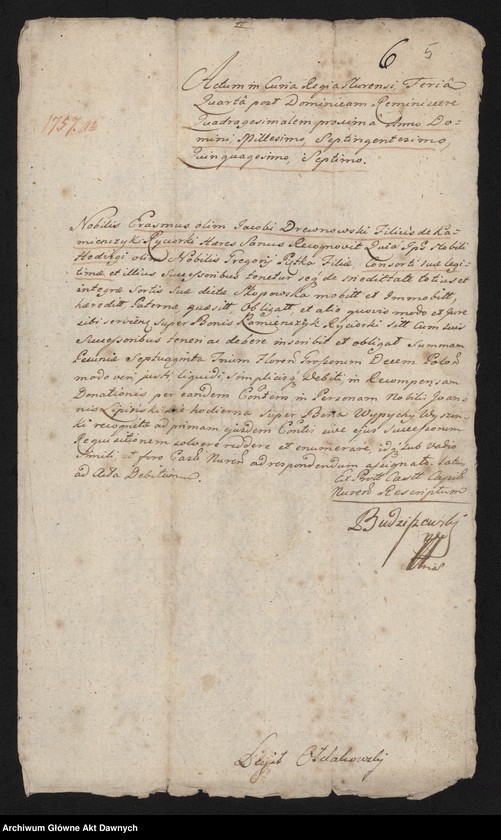 6 5
1757.
Actum in Curia Regia Nurensi, Feria
Quarta post Dominicam Reminiscere
Quadragesimalem proxima Anno Do-
mini Millesimo, Septingentesimo,
Quinquagesimo, Septimo.
Nobilis Erasmus olim Jacobi Drewnowski Filius de Ka-
mienczyk Ryciorki Hæres Sanus Recognovit Quia Ipse Nobili
Hedvigi olim Nobilis Gregorij Pętka Filiæ, Consorti suæ legi-
timæ et illius Successoribus tenetur de medietate totius et
integræ Sortis suæ dictæ mobili et Immobili,
Paternæ, et alio quovis modo et Jure
sibi Super Bonis Kamienczyk Rycioski cum suis
Successoribus debere inscribit et obligat Summam
Pecuniæ Septuaginta Trium Floren Grossorum Decem Polon
modo veri, justi, liquidi, Debiti, in Recompensam
Donationis per eandem in Personam Nobilis Joan-
nis Lipinski hodierna Super Bona Wypychy Wyszon-
ki recognitæ ad primam ejusdem sive ejus Successorum
Requisitionem solvere reddere et enumerare, sub Vadio
Simili, et foro Castri Nuren ad respondendum assignato.
ad Acta Debitum.
Ex Castr
Nuren Rescriptum
Budziszewski
Legit
Archiwum Główne Akt Dawnych